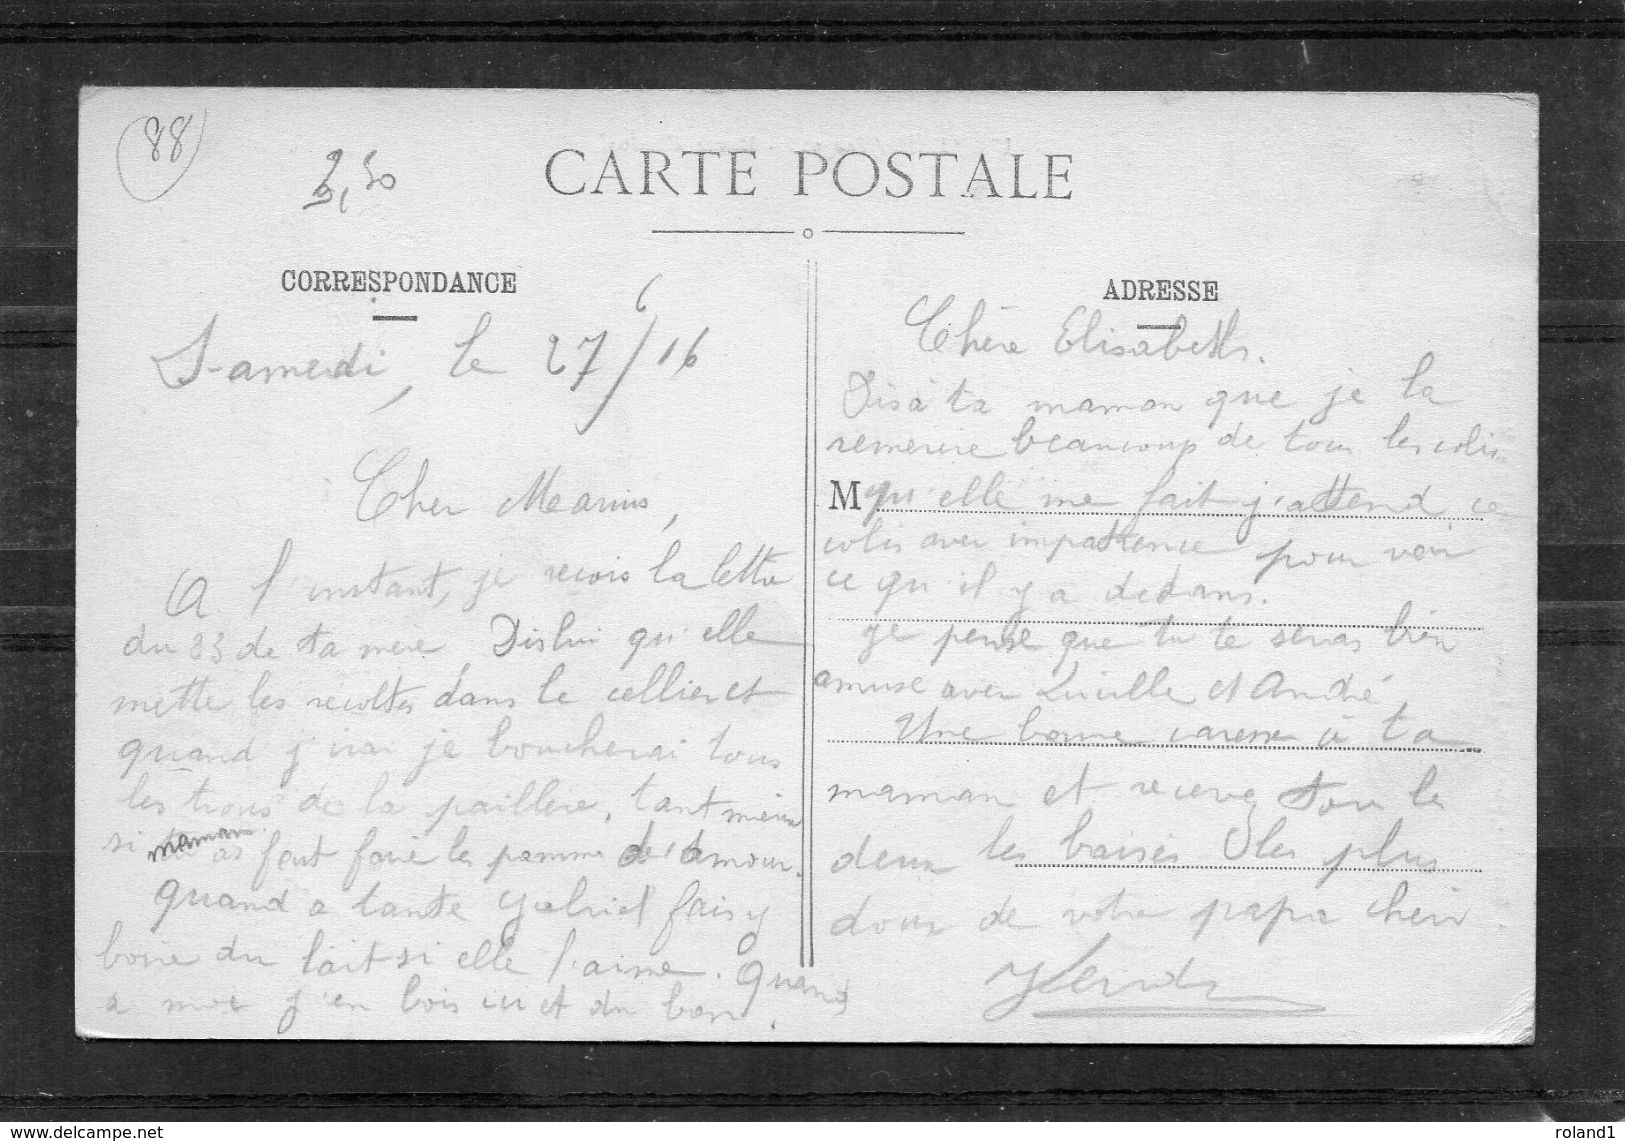 88
2,50
CARTE POSTALE
CORRESPONDANCE
Samedi, le 27/6/16
Cher Marius,
A l'instant, je reçois la lettre
du 23 de ta mère. Dis lui qu'elle
mette les récoltes dans le cellier et
quand j'irai je boucherai tous
les trous de la paillere, tant mieux
si maman as fait faire les pommes de l'amour.
quand a tante Gabriel fais y
boire du lait si elle l'aime. Quand
a moi j'en bois ici et du bon.
ADRESSE
Chère Elisabeth.
Dis à ta maman que je la
remercie beaucoup de tous les colis
M qu'elle me fait j'attend ce
colis avec impatience pour voir
ce qu'il y a dedans.
je pense que tu te seras bien
amusé avec Lucille et André
Une bonne caresse à ta
maman et recevez tous les
deux les baisers les plus
doux de votre papa cheri
delcampe.net
roland1